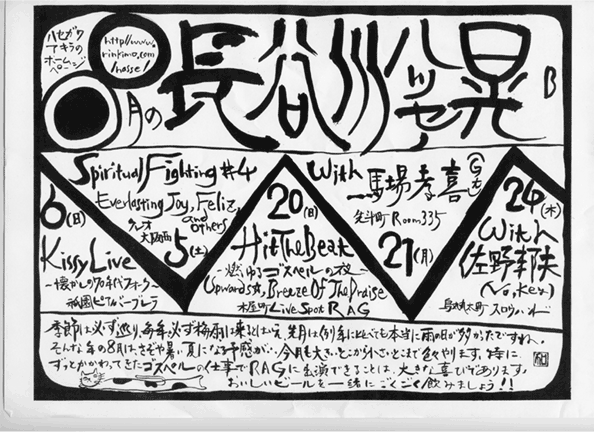 ハセガワ
アキラの
ホーム
ページ
http://www.
rinkimo.com/
hasse/
8月の
長谷川晃
ハッセ
B
6(日)
Kissy Live
～懐かしの70年代フォーク～
祇園ピアノバー
Spiritual Fighting #4
Everlasting Joy, Feliz,
and others
クレオ
大阪西
5(土)
20(日)
Hit The Beat
～燃ゆるゴスペルの夜～
Upwards, Breeze Of The Praise
木屋町 Live Spot RAG
With
馬場孝喜(Gt)
先斗町 Room335
21(月)
24(木)
With
佐野邦夫
(Vo, Key)
季節は必ず巡り、毎年必ず梅雨は来るとはいえ、先月は例年にくらべても本当に雨の日が多かったですね。
そんな年の8月は、さぞや暑い夏になる予感が… 今月も大きいとこから小さいとこまで色々やります。特に
ずっとかかわってきたゴスペルの仕事でRAGに出演できることは、大きな喜びであります。
おいしいビールを一緒にごくごく飲みましょう!!